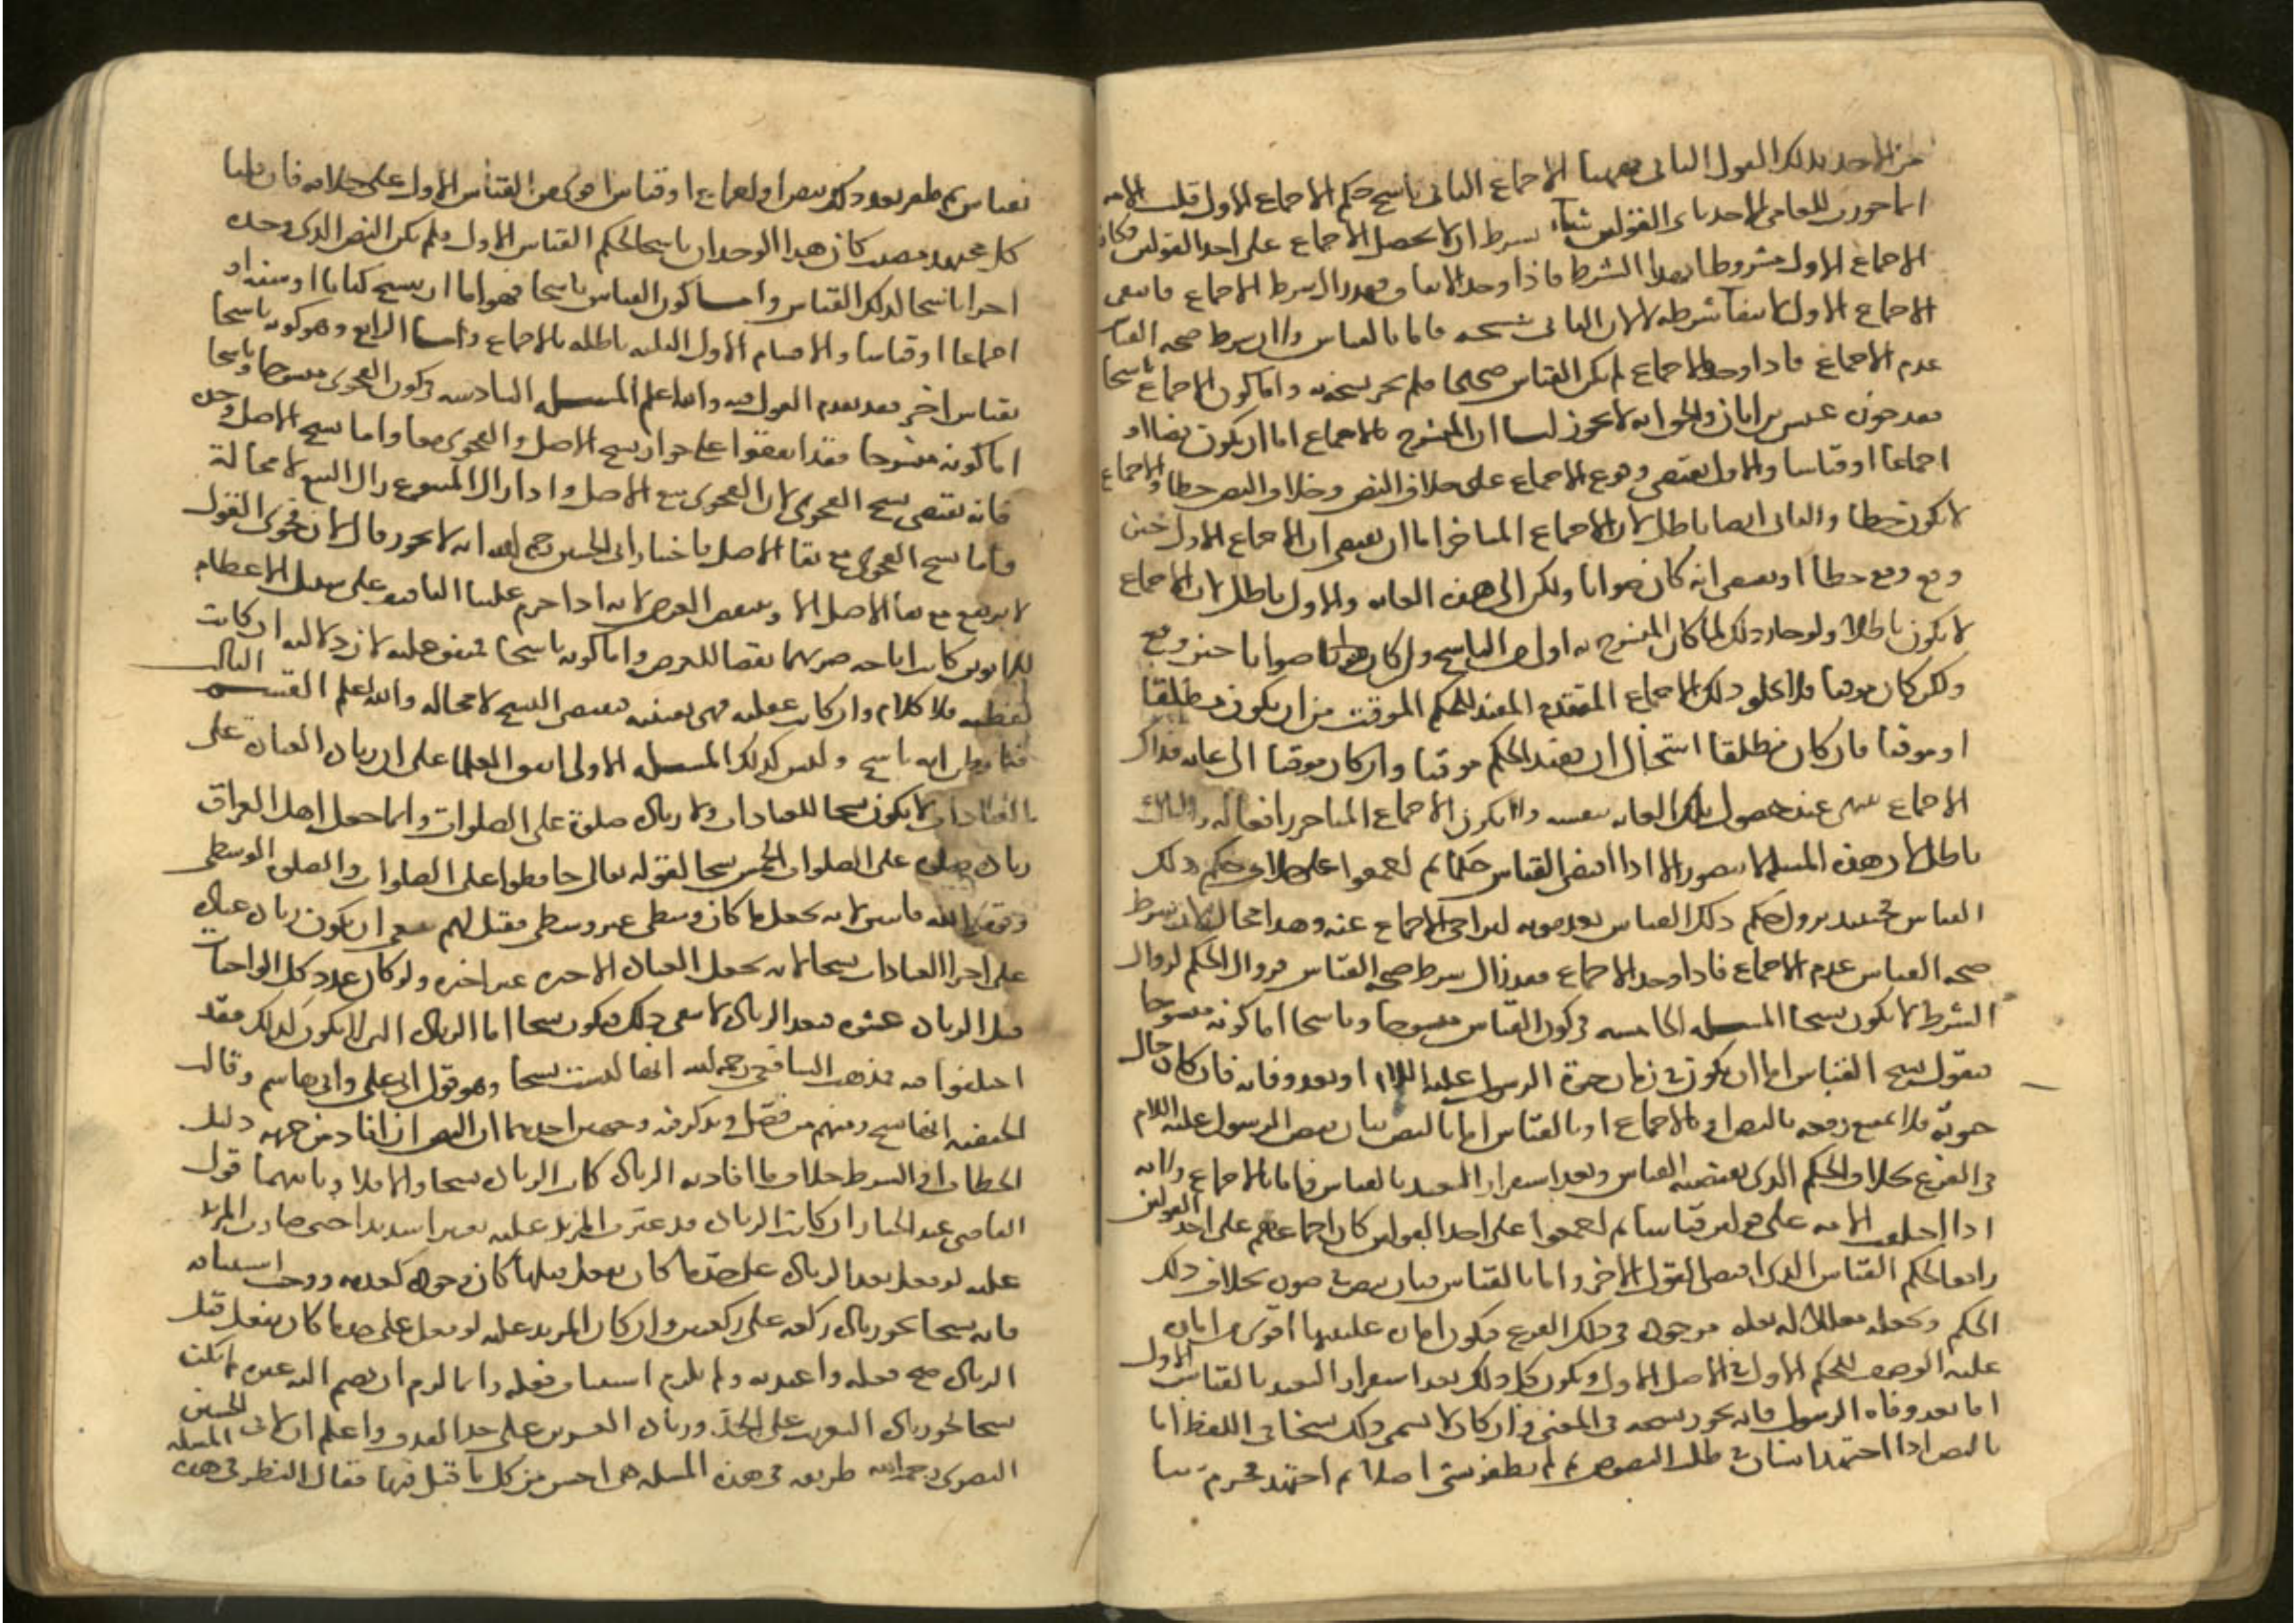 من الاخذ بذلك القول الثاني فههنا الاجماع الثاني ناسخ حكم الاجماع الاول قلت الامة
انما جوزت للعامي الاخذ باي القولين شاء بشرط ان لا يحصل الاجماع على احد القولين فكان
الاجماع الاول مشروطا بهذا الشرط فاذا وجد الاجماع فقد زال شرط الاجماع فانتفى
الاجماع الاول لانتفاء شرطه لا لان الثاني نسخه فاما بالقياس ولان شرط صحة القياس
عدم الاجماع فاذا وجد الاجماع لم يكن القياس صحيحا فلم يجز نسخه به واما كون الاجماع ناسخا
فقد جوزه عيسى بن ابان والحق انه لا يجوز لنا ان المنسوخ بالاجماع اما ان يكون نصا او
اجماعا او قياسا والاول يقتضي وقوع الاجماع على خلاف النص وخلاف النص خطأ والاجماع
لا يكون خطأ والثاني ايضا باطل لان الاجماع المتاخر اما ان يقتضي ان الاجماع الاول حين
وقع وقع خطأ او يقتضي انه كان صوابا ولكن الى هذه الغاية والاول باطل لان الاجماع
لا يكون باطلا ولو جاز ذلك لما كان المنسوخ به اولى من الناسخ وان كان صوابا حين وقع
ولكن كان موقتا فلا يخلو ذلك الاجماع المتقدم المفيد للحكم الموقت من ان يكون مطلقا
او موقتا فان كان مطلقا استحال ان يفيد الحكم موقتا وان كان موقتا الى غاية فذاك
الاجماع ينتهي عند حصول تلك الغاية بنفسه ولا يكون الاجماع المتاخر رافعا له والثالث
باطل لان هذه المسلة لا تتصور الا اذا اقتضى القياس حكما ثم اجمعوا على خلاف حكم ذلك
القياس فحينئذ يزول حكم ذلك القياس بعد ثبوته لتراخي الاجماع عنه وهذا محال لان شرط
صحة القياس عدم الاجماع فاذا وجد الاجماع فقد زال شرط صحة القياس وزوال الحكم لزوال
الشرط لا يكون نسخا المسلة الخامسة في كون القياس منسوخا وناسخا اما كونه منسوخا
فنقول نسخ القياس اما ان يكون في زمان حيوة الرسول عليه السلام او بعد وفاته فان كان حال
حيوته فلا يمتنع رفعه بالنص او بالاجماع او بالقياس اما بالنص بان ينص الرسول عليه السلام
في الفرع بخلاف الحكم الذي يقتضيه القياس وبعد استقرار التعبد بالقياس فاما بالاجماع ولانه
اذا اختلف الامة على قولين قياسا ثم اجمعوا على احد القولين كان اجماعهم على احد القولين
رافعا لحكم القياس الذي اقتضى القول الاخر واما بالقياس فبان ينص في صورة بخلاف ذلك
الحكم ويجعله معللا له بعلة موجودة في ذلك الفرع فيكون امارة عليتها اقوى من امارة
علية الوصف للحكم الاول في الاصل الاول ويكون كل ذلك بعد استقرار التعبد بالقياس الاول
اما بعد وفاة الرسول فانه يجوز نسخه في المعنى وان كان لا يسمى ذلك نسخا في اللفظ اما
بالنص اذا اجتهد انسان في طلب النصوص ثم لم يظفر بشي اصلا ثم اجتهد فحرم شيا
بقياس ثم ظفر بعد ذلك بنص او اجماع او قياس اقوى من القياس الاول على خلافه فان قلنا
كل مجتهد مصيب كان هذا الوجدان ناسخا لحكم القياس الاول فلم يكن النص الذي وجده
اخرا ناسخا لذلك القياس واما كون القياس ناسخا فهو اما ان ينسخ كتابا او سنة او
اجماعا او قياسا والاقسام الاول الثلثة باطلة بالاجماع واما الرابع وهو كونه ناسخا
بقياس اخر فقد تقدم القول فيه والله اعلم المسلة السادسة في كون الفحوى منسوخا وناسخا
اما كونه منسوخا فقد اتفقوا على جواز نسخ الاصل والفحوى معا واما نسخ الاصل وحده
فانه يقتضي نسخ الفحوى لان الفحوى تبع الاصل واذا زال المتبوع زال التبع لا محالة
واما نسخ الفحوى مع بقا الاصل فاختيار ابي الحسين رحمه الله انه لا يجوز قال لان فحوى القول
لا يرتفع مع بقا الاصل الا وينتقض الغرض لانه اذا حرم علينا التافيف على سبيل الاعظام
للابوين كانت اباحة ضربهما نقضا للغرض واما كونه ناسخا فمتفق عليه لان دلالته ان كانت
لفظية فلا كلام وان كانت عقلية فهي يقينية فتقتضي النسخ لا محالة والله اعلم القسم الثالث
فيما يظن انه ناسخ وليس كذلك المسلة الاولى اتفق العلما على ان زيادة العبادة على
العبادات لا يكون نسخا للعبادات ولا زيادة صلوة على الصلوات وانما جعل اهل العراق
زيادة صلوة على الصلوات الخمس نسخا لقوله تعالى حافظوا على الصلوات والصلوة الوسطى
وقوموا لله قانتين لانه يجعل ما كان وسطى غير وسطى فقيل لهم ينبغي ان يكون زيادة عبادة
على اخر العبادات نسخا لانه يجعل العبادة الاخيرة غير اخيرة ولو كان عدد كل الواجبات
قبل الزيادة عشرة فبعد الزيادة لا يبقى ذلك فيكون نسخا اما الزيادة التي لا يكون كذلك فقد
اختلفوا فيه فمذهب الشافعي رحمه الله انها ليست نسخا وهو قول ابي علي وابي هاشم وقالت
الحنفية انها نسخ ومنهم من فصل وذكر فيه وجهين احدهما ان النص ان افاد من جهة دليل
الخطاب او الشرط خلاف ما افادته الزيادة كانت الزيادة نسخا والا فلا وثانيهما قول
القاضي عبد الجبار ان كانت الزيادة قد غيرت المزيد عليه تغييرا شديدا حتى صار المزيد
عليه لو فعل بعد الزيادة على حد ما كان يفعل قبلها كان وجوده كعدمه ووجب استينافه
فانه نسخا نحو زيادة ركعة على ركعتين وان كان المزيد عليه لو فعل على حد ما كان يفعل قبل
الزيادة صح فعله واعتد به ولم يلزم استيناف فعله وانما لزم ان يضم اليه غيره لم يكن
نسخا نحو زيادة التغريب على الحد وزيادة العشرين على حد القذف واعلم ان لابي الحسين
البصري رحمه الله طريقة في هذه المسلة هي احسن من كل ما قيل فيها فقال النظر في هذه المسلة